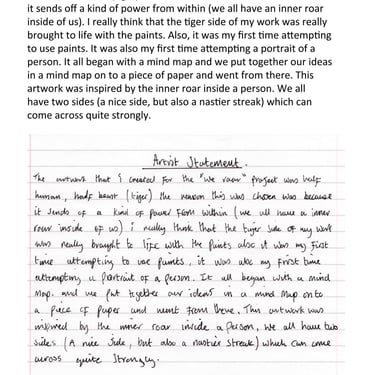 it sends off a kind of power from within (we all have an inner roar
inside of us). I really think that the tiger side of my work was really
brought to life with the paints. Also, it was my first time attempting
to use paints. It was also my first time attempting a portrait of a
person. It all began with a mind map and we put together our ideas
in a mind map on to a piece of paper and went from there. This
artwork was inspired by the inner roar inside a person. We all
have two sides (a nice side, but also a nastier streak) which can
come across quite strongly.
Artist Statement.
The artwork that i created for the "we roar" project was half
human, half beast (tiger) the reason this was chosen was because
it sends of a kind of power from within (we all have a inner
roar inside of us) i really think that the tiger side of my work
was really brought to life with the paints also it was my first
time attempting to use paints, it was also my frist time
attempting a portrait of a person. It all began with a mind
map. and we put together our ideas in a mind map onto
a piece of paper and went from there. This artwork was
inspired by the inner roar inside a person, we all have two
sides (A nice side, but also a nastier streak) which can come
across quite strongly.